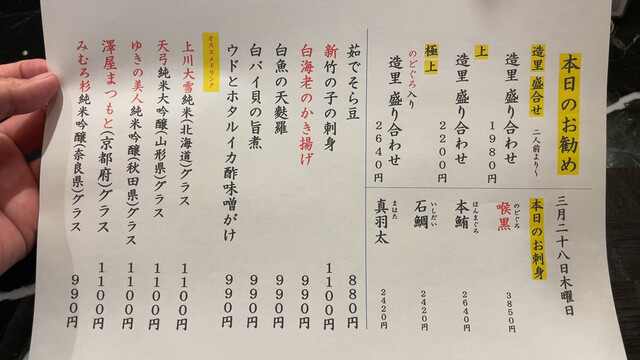 本日のお勧め
造里 盛合せ 二人前より〜
造里 盛り合わせ 1980円
上
造里 盛り合わせ 2200円
極上
のどぐろ入り
造里 盛り合わせ 2640円
三月二十八日木曜日
本日のお刺身
喉黒 のどぐろ 3850円
本鮪 ほんまぐろ 2640円
石鯛 いしだい 2420円
真羽太 まはた 2420円
茹でそら豆 880円
新竹の子の刺身 1100円
白海老のかき揚げ 990円
白魚の天麩羅 990円
白バイ貝の旨煮 990円
ウドとホタルイカ酢味噌がけ 990円
オススメドリンク
上川大雪純米(北海道)グラス 1100円
天弓純米大吟醸(山形県)グラス 1100円
ゆきの美人純米吟醸(秋田県)グラス 1100円
澤屋まつもと(京都府)グラス 1100円
みむろ杉純米吟醸(奈良県)グラス 990円